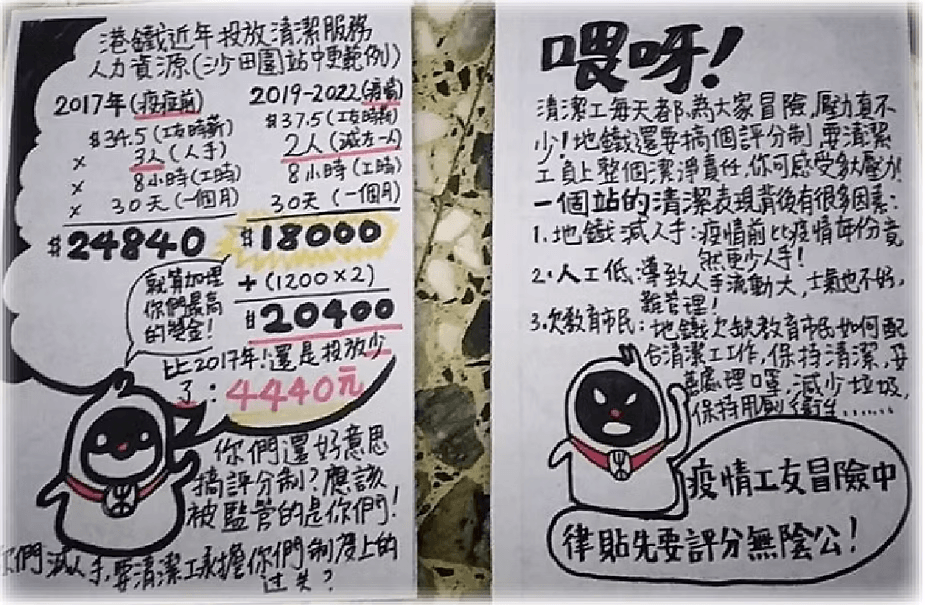 港鐵近年投放清潔服務
人力資源(沙田圍站中更範例)
2017年(疫症前)
$34.5(工友時薪)
x 3人(人手)
x 8小時(工時)
x 30天(一個月)
$24840
2019-2022(疫當)
$37.5(工友時薪)
2人(減左一人)
8小時(工時)
30天(一個月)
$18000
+(1200×2)
$20400
就算加埋
你們最高
的獎金!
比2017年!還是投放少
了:4440元
你們還好意思
搞評分制?應該
被監管的是你們!
你們減人手,要清潔工承擔你們制度上的
过失?
喂呀!
清潔工每天者阝為大家冒險,壓力真不
少!地鐵還要搞個評分制 要清潔
工負上整個潔淨責任,你可感受多大壓力!
一個站的清潔表現背後有很多因素:
1.地鐵減人手:疫情前比疫情年份竟
然更少人手!
2.人工低:導致人手流動大,士氣也不好,
難管理!
3.欠教育市民:地鐵欠缺教育市民如何配
合清潔工工作,保持清潔,妥
善處理口罩,減少垃圾,
保持厠所衛生......
疫情工友冒險中
津貼先要評分無陰公!